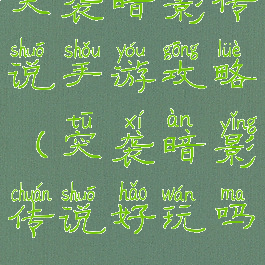 突袭暗影传
shuō shǒu yóu gōng lüè
说手游攻略
tū xí àn yǐng
（突袭暗影
chuán shuō hǎo wán ma
传说好玩吗